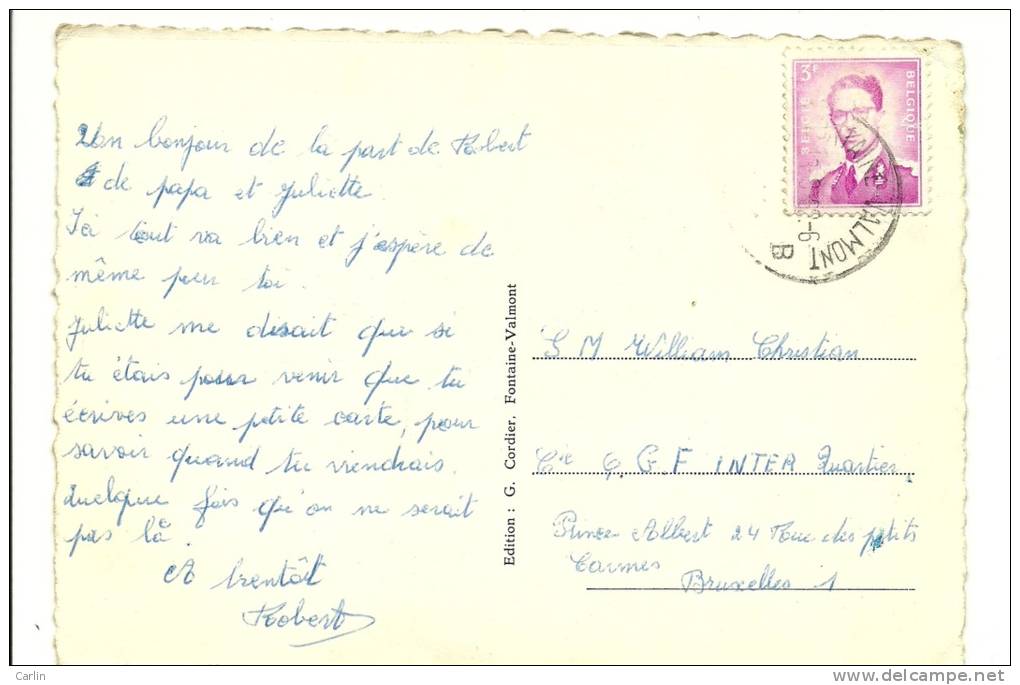 Un bonjour de la part de Robert
de papa et Juliette.
Ici tout va bien et j'espère de
même pour toi.
Juliette me disait que si
tu étais pour venir que tu
écrives une petite carte, pour
savoir quand tu viendrais.
Quelque fois qu'on ne serait
pas là.
A bientôt
Robert
Edition : G. Cordier, Fontaine-Valmont
3F
BELGIE
BELGIQUE
VALMONT
B
S M William Christian
Cie Q.G F INTER Quartier
Prince Albert 24 Rue des petits
Carmes
Bruxelles 1
Carlin
delcampe.net